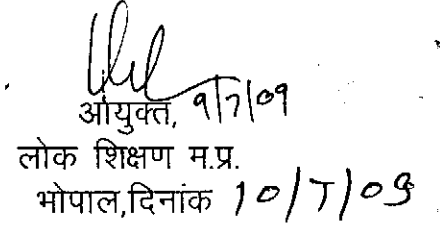 आयुक्त, 9/7/09
लोक शिक्षण म.प्र.
भोपाल,दिनांक 10/7/09